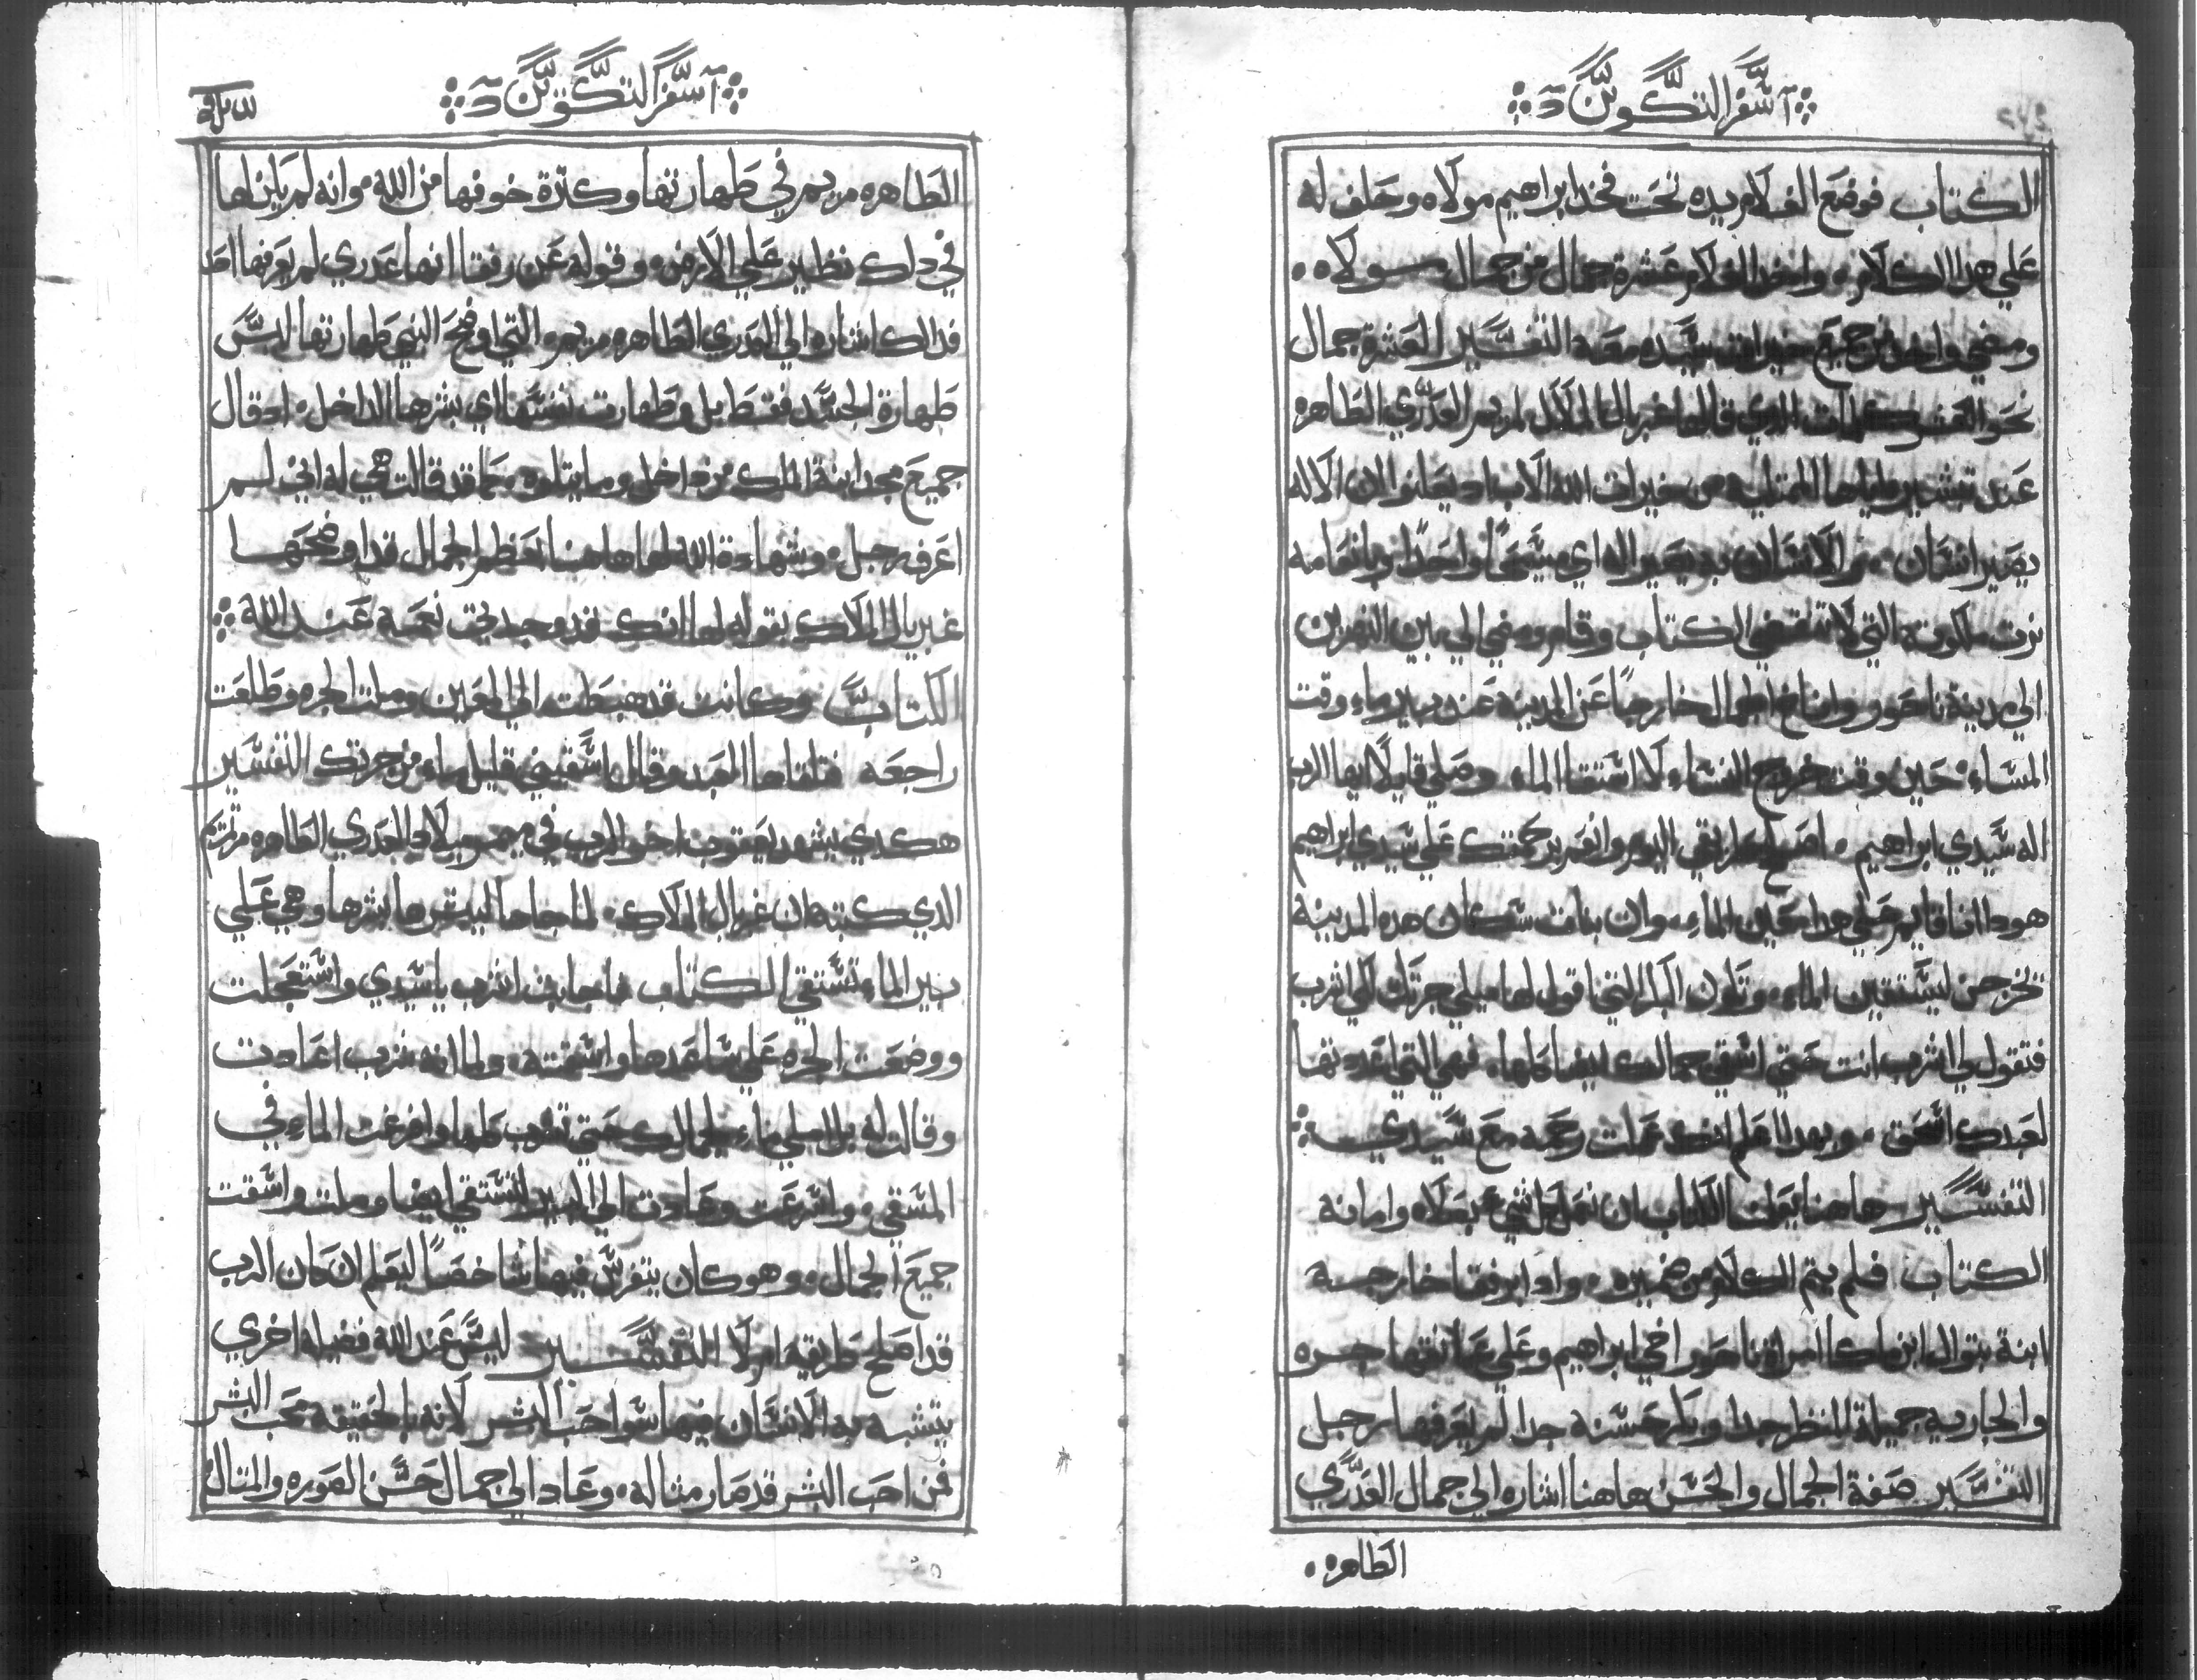 سفر التكوين
الكتاب فوضع الغلام يده تحت فخد ابراهيم مولاه وحلف له
علي هدا الكلام واخد الغلام عشرة جمال من جمال مولاه
ومضي واخد من جميع خيرات سيده معه التفسير العشرة جمال
نحو العشر كلمات الدي قالها غبريال الملاك لمريم العدري الطاهره
عند تبشير اياها الممتليه من خيرات الله الاب اد يعلنوا لان الاله
يصير انسان ثم الانسان به يصير اله اي مسيحًا واحدًا وبانعامه
نرت ملكوته التي لا تنقضي الكتاب وقام ومضي الي بين النهرين
الي مدينة ناحور واناخ الجمال خارجًا عن المدينه عند بير ماء وقت
المساء حين وقت خروج النساء لاستقا الماء وصلي قايلًا ايها الرب
اله سيدي ابراهيم اصلح طريقي اليوم وانعم برحمتك علي سيدي ابراهيم
هودا انا قايم علي هدا عين الماء وان بنات سكان هده المدينه
تخرجن ليستقين الماء وتكون البكر التي اقول لها ميلي جرتك لكي اشرب
فتقول لي اشرب انت حتي اسقي جمالك ايضا كلها فهي التي اعددتها
لعبدك اسحق وبهدا اعلم انك عملت رحمه مع سيدي
التفسير هاهنا يعلمنا الكتاب ان نعمل كل شي بصلاه وامانه
الكتاب فلم يتم الكلام من ضميره وادا برفقا خارجه
ابنة بتوال ابن ملكا امراة ناحور اخي ابراهيم وعلي عاتقها جره
والجاريه جميلة المنظر جدا وبكر حسنه جدا لم يعرفها رجل
التفسير صفة الجمال والحسن هاهنا اشاره الي جمال العدري
الطاهره
سفر التكوين
الطاهره مريم في طهارتها وكثرة خوفها من الله وانه لم يكن لها
في دلك نظير علي الارض وقوله عن رفقا انها عدري لم يعرفها احد
فدالك اشاره الي العدري الطاهره مريم التي اوضح النبي طهارتها ليس
طهارة الجسد فقط بل وطهارت نفسها اي بشرها الداخل اد قال
جميع مجد ابنة الملك من داخل وما يتلوه كما قد قالت هي له اني لم
اعرف رجل وشهادة الله لها هاهنا بعظم الجمال قد اوضحها
غبريال الملاك بقوله لها انك قد وجدتي نعمه عند الله
الكتاب وكانت قد هبطت الي العين وملت الجره وطلعت
راجعه فتلقاها العبد وقال اسقيني قليل ماء من جرتك التفسير
هكدي يشهد يعقوب اخو الرب في ميمر ميلاد العدري الطاهره مرتمريم
الدي كتبه ان غبريال الملاك لما جاها ليبشرها بشرها وهي علي
بير الماء تستقي الكتاب فاجابت اشرب ياسيدي واستعجلت
ووضعت الجره علي ساعدها واسقته ولما انه شرب اعادت
وقالت له بل املي ماء لجمالك حتي تشرب كلها وافرغت الماء في
المسقي واسرعت وعادت الي البير لتستقي ايضا وملت واسقت
جميع الجمال وهو كان يتفرس فيها شاخصًا ليعلم ان كان الرب
قد اصلح طريقه ام لا التفسير ليس عند الله فضيله اخري
يتشبه به الانسان فيها سوا حب البشر لانه بالحقيقه محب البشر
فمن احب البشر قد صار مثاله وعاد الي جمال حسن الصوره والمتال